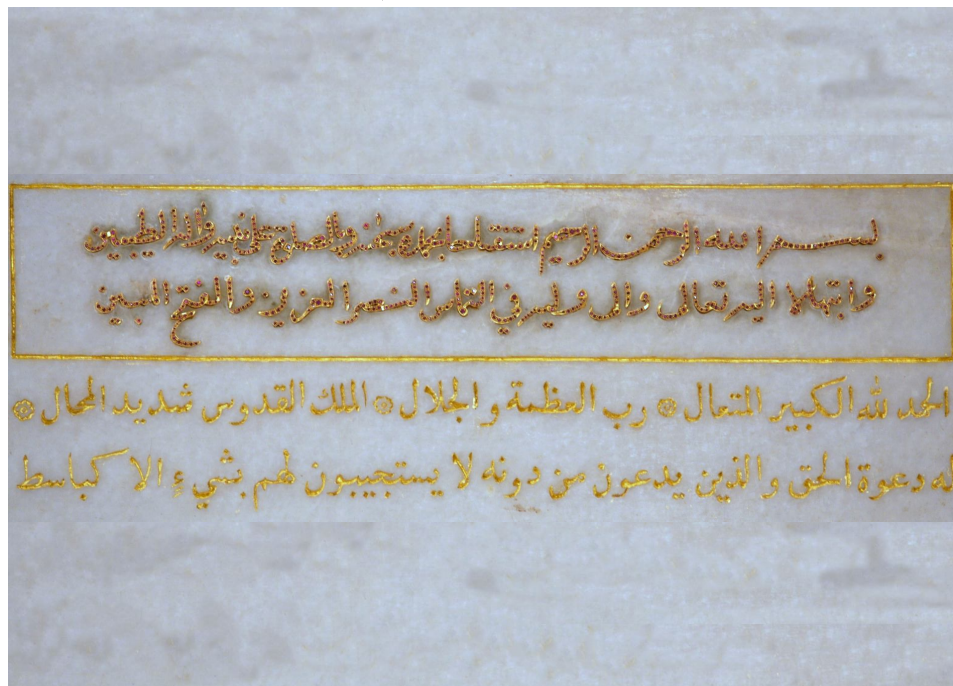 بسم الله الرحمن الرحيم على نبيه واله الطيبين
وابتهالا اليه تعالى والى وليه في التماس النصر العزيز والفتح المبين
الحمد لله الكبير المتعال ۞ رب العظمة والجلال ۞ الملك القدوس شديد المحال ۞
له دعوة الحق والذين يدعون من دونه لا يستجيبون لهم بشيء الا كباسط